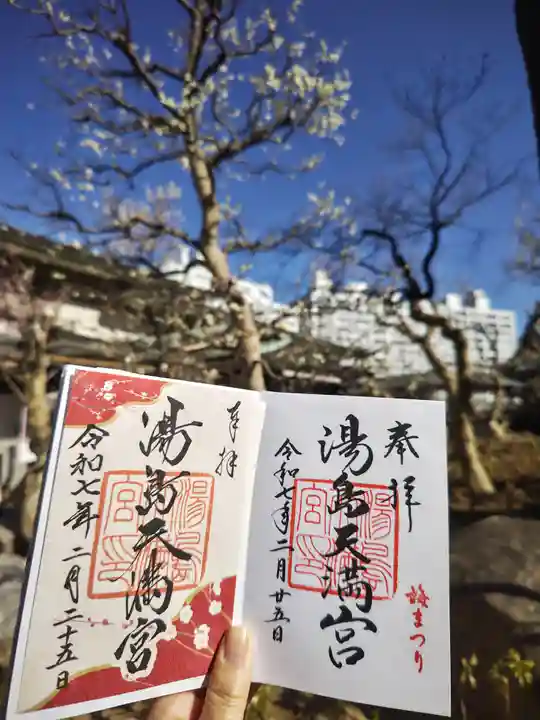 奉拝
湯島天満宮
湯島宮印
梅まつり
令和七年二月廿五日
奉拝
湯島天満宮
湯島宮印
令和七年二月二十五日